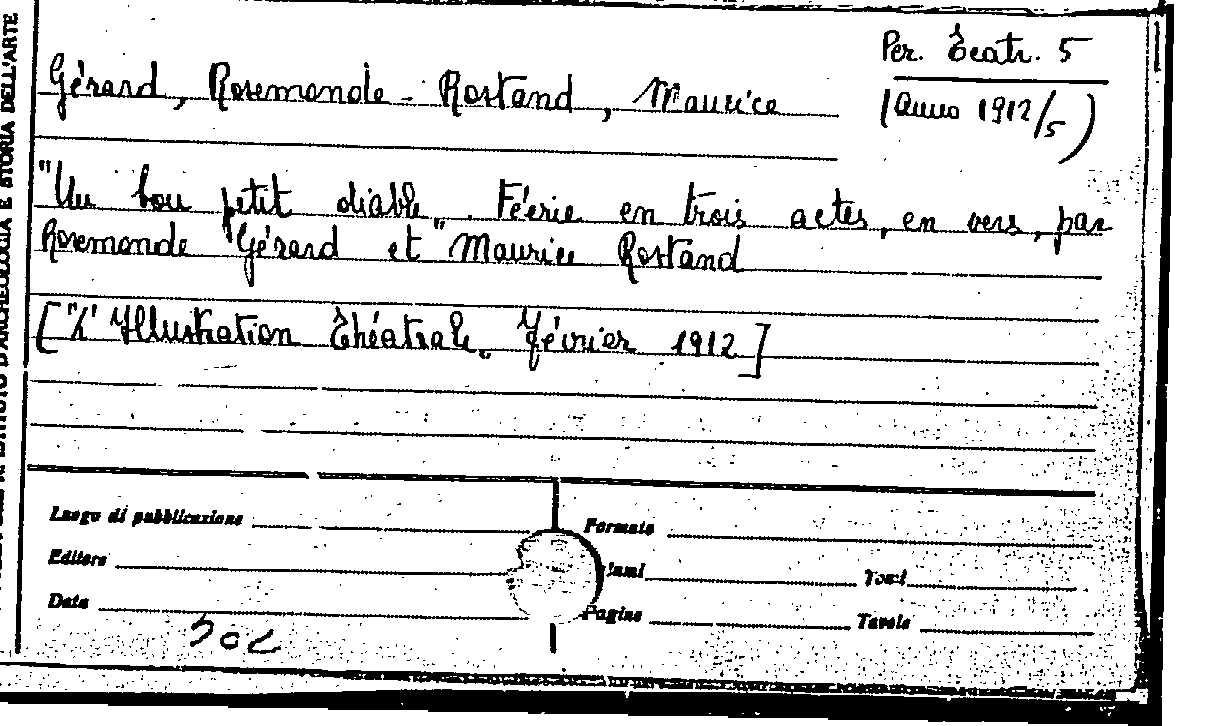 Per. Teatr. 5
(Anno 1912/5)
Gérard, Rosemonde - Rostand, Maurice
"Un bon petit diable". Féerie en trois actes, en vers, par
Rosemonde Gérard et Maurice Rostand
["L'Illustration Théatrale". Février 1912]
Luogo di pubblicazione
Formato
Editore
Tomi
Data
Pagine
Tavole
D'ARCHEOLOGIA E STORIA DELL'ARTE